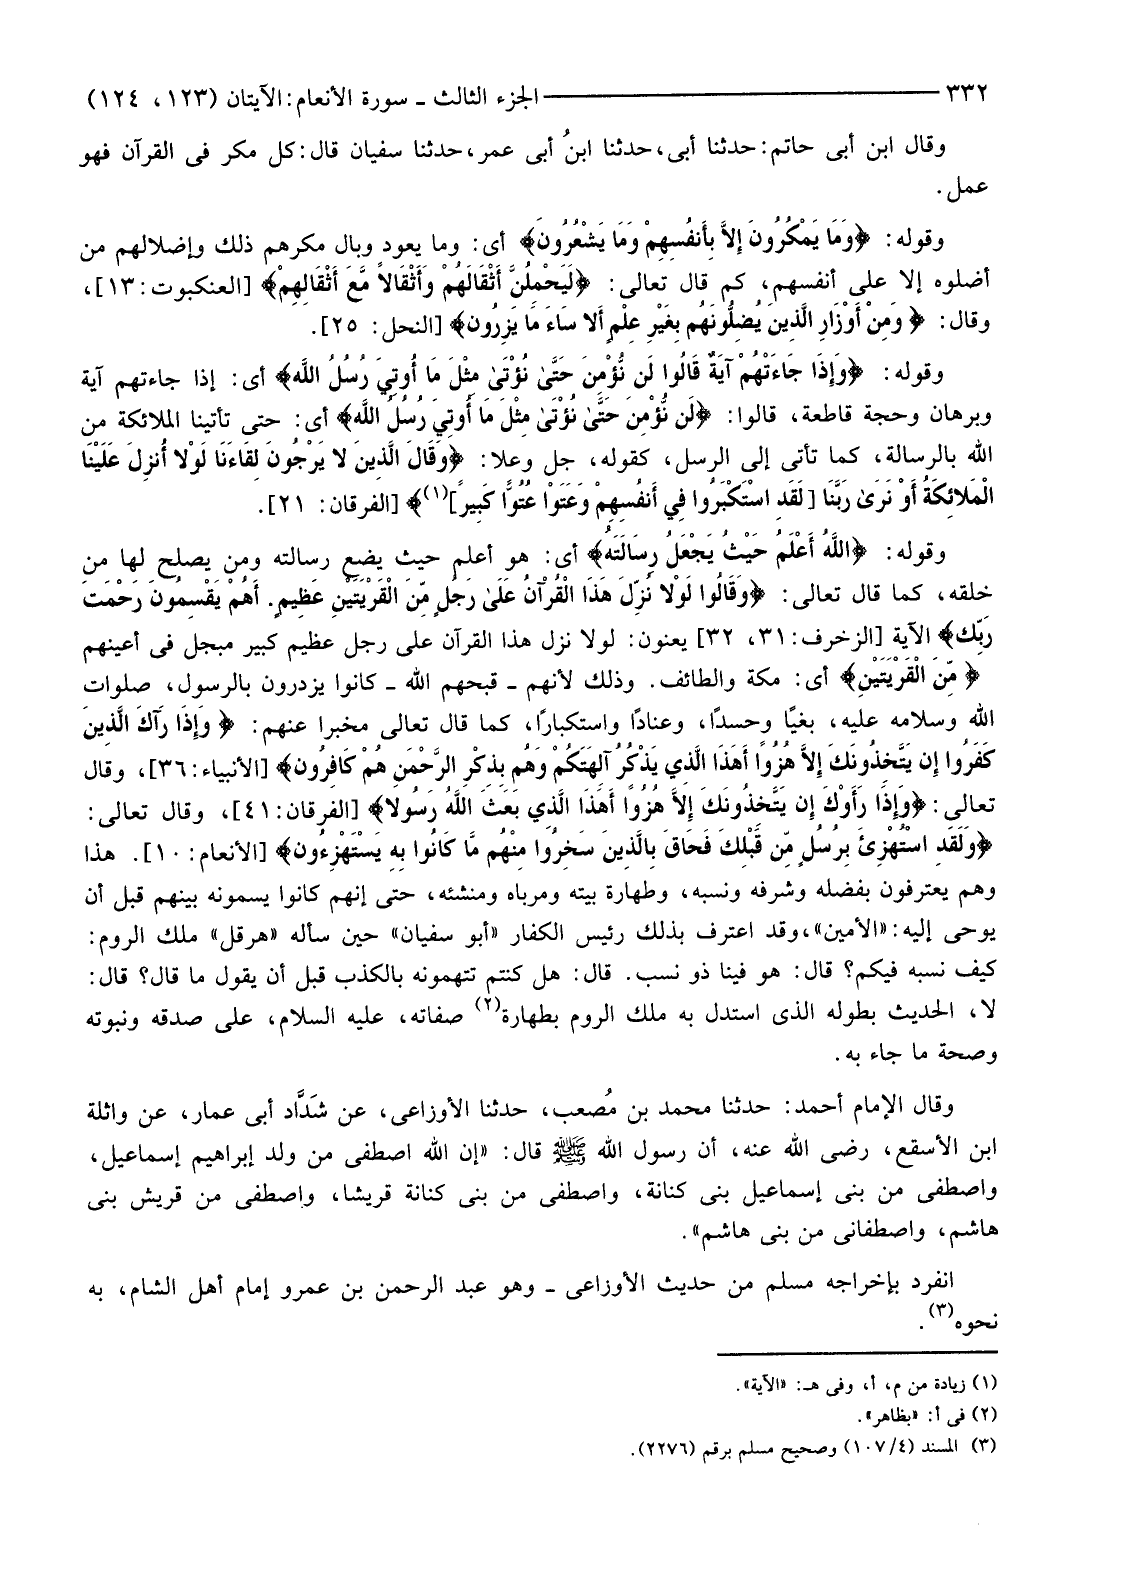 ٣٣٢ ــــــــــــــــــــ الجزء الثالث ـ سورة الأنعام: الآيتان (١٢٣، ١٢٤)
وقال ابن أبى حاتم: حدثنا أبى، حدثنا ابنُ أبى عمر، حدثنا سفيان قال: كل مكر فى القرآن فهو
عمل.
وقوله: ﴿وَمَا يَمْكُرُونَ إِلاَّ بِأَنفُسِهِمْ وَمَا يَشْعُرُونَ﴾ أى: وما يعود وبال مكرهم ذلك وإضلالهم من
أضلوه إلا على أنفسهم، كم قال تعالى: ﴿لَيَحْمِلُنَّ أَثْقَالَهُمْ وَأَثْقَالاً مَّعَ أَثْقَالِهِمْ﴾ [العنكبوت: ١٣]،
وقال: ﴿ وَمِنْ أَوْزَارِ الَّذِينَ يُضِلُّونَهُم بِغَيْرِ عِلْمٍ أَلا سَاءَ مَا يَزِرُونَ﴾ [النحل: ٢٥].
وقوله: ﴿وَإِذَا جَاءَتْهُمْ آيَةٌ قَالُوا لَن نُّؤْمِنَ حَتَّىٰ نُؤْتَىٰ مِثْلَ مَا أُوتِيَ رُسُلُ اللَّه﴾ أى: إذا جاءتهم آية
وبرهان وحجة قاطعة، قالوا: ﴿لَن نُّؤْمِنَ حَتَّىٰ نُؤْتَىٰ مِثْلَ مَا أُوتِيَ رُسُلُ اللَّه﴾ أى: حتى تأتينا الملائكة من
الله بالرسالة، كما تأتى إلى الرسل، كقوله، جل وعلا: ﴿وَقَالَ الَّذِينَ لا يَرْجُونَ لِقَاءَنَا لَوْلا أُنزِلَ عَلَيْنَا
الْمَلائِكَةُ أَوْ نَرَىٰ رَبَّنَا [لَقَدِ اسْتَكْبَرُوا فِي أَنفُسِهِمْ وَعَتَوْا عُتُوًّا كَبِيراً](١)﴾ [الفرقان: ٢١].
وقوله: ﴿اللَّهُ أَعْلَمُ حَيْثُ يَجْعَلُ رِسَالَتَهُ﴾ أى: هو أعلم حيث يضع رسالته ومن يصلح لها من
خلقه، كما قال تعالى: ﴿وَقَالُوا لَوْلا نُزِّلَ هَذَا الْقُرْآنُ عَلَىٰ رَجُلٍ مِّنَ الْقَرْيَتَيْنِ عَظِيمٍ. أَهُمْ يَقْسِمُونَ رَحْمَتَ
رَبِّكَ﴾ الآية [الزخرف: ٣١، ٣٢] يعنون: لولا نزل هذا القرآن على رجل عظيم كبير مبجل فى أعينهم
﴿ مِّنَ الْقَرْيَتَيْنِ﴾ أى: مكة والطائف. وذلك لأنهم ـ قبحهم الله ـ كانوا يزدرون بالرسول، صلوات
الله وسلامه عليه، بغيًا وحسدًا، وعنادًا واستكبارًا، كما قال تعالى مخبرا عنهم: ﴿ وَإِذَا رَآكَ الَّذِينَ
كَفَرُوا إِن يَتَّخِذُونَكَ إِلاَّ هُزُواً أَهَذَا الَّذِي يَذْكُرُ آلِهَتَكُمْ وَهُم بِذِكْرِ الرَّحْمَنِ هُمْ كَافِرُون﴾ [الأنبياء: ٣٦]، وقال
تعالى: ﴿وَإِذَا رَأَوْكَ إِن يَتَّخِذُونَكَ إِلاَّ هُزُوًا أَهَذَا الَّذِي بَعَثَ اللَّهُ رَسُولا﴾ [الفرقان: ٤١]، وقال تعالى:
﴿وَلَقَدِ اسْتُهْزِئَ بِرُسُلٍ مِّن قَبْلِكَ فَحَاقَ بِالَّذِينَ سَخِرُوا مِنْهُم مَّا كَانُوا بِهِ يَسْتَهْزِءُون﴾ [الأنعام: ١٠]. هذا
وهم يعترفون بفضله وشرفه ونسبه، وطهارة بيته ومرباه ومنشئه، حتى إنهم كانوا يسمونه بينهم قبل أن
يوحى إليه: «الأمين»، وقد اعترف بذلك رئيس الكفار «أبو سفيان» حين سأله «هرقل» ملك الروم:
كيف نسبه فيكم؟ قال: هو فينا ذو نسب. قال: هل كنتم تتهمونه بالكذب قبل أن يقول ما قال؟ قال:
لا، الحديث بطوله الذى استدل به ملك الروم بطهارة(٢) صفاته، عليه السلام، على صدقه ونبوته
وصحة ما جاء به.
وقال الإمام أحمد: حدثنا محمد بن مُصعب، حدثنا الأوزاعى، عن شَدَّاد أبى عمار، عن واثلة
ابن الأسقع، رضى الله عنه، أن رسول الله ﷺ قال: «إن الله اصطفى من ولد إبراهيم إسماعيل،
واصطفى من بنى إسماعيل بنى كنانة، واصطفى من بنى كنانة قريشا، واصطفى من قريش بنى
هاشم، واصطفانى من بنى هاشم».
انفرد بإخراجه مسلم من حديث الأوزاعى ـ وهو عبد الرحمن بن عمرو إمام أهل الشام، به
نحوه(٣).
(١) زيادة من م، أ، وفى هـ: «الآية».
(٢) فى أ: «بظاهر».
(٣) المسند (١٠٧/٤) وصحيح مسلم برقم (٢٢٧٦).